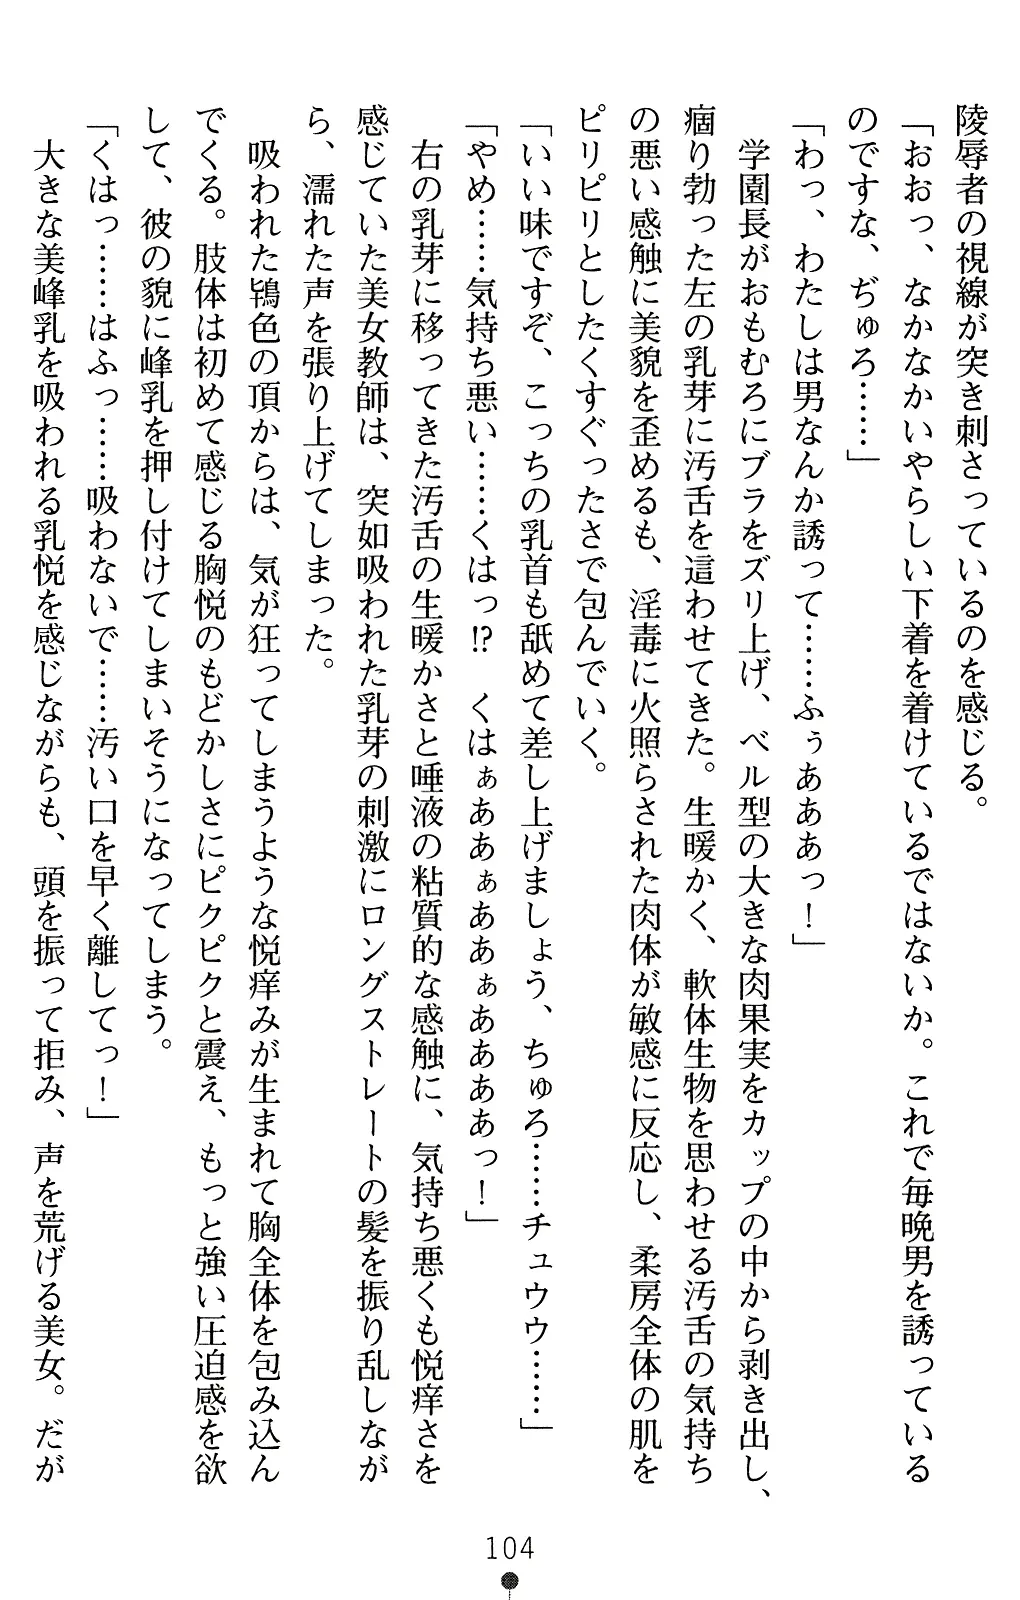 陵辱者の視線が突き刺さっているのを感じる。
「おおっ、なかなかいやらしい下着を着けているではないか。これで毎晩男を誘っている
のですな、ぢゅろ……」
「わっ、わたしは男なんか誘って……ふぅあああっ！」
学園長がおもむろにブラをズリ上げ、ベル型の大きな肉果実をカップの中から剥き出し、
痼り勃った左の乳芽に汚舌を這わせてきた。生暖かく、軟体生物を思わせる汚舌の気持ち
の悪い感触に美貌を歪めるも、淫毒に火照らされた肉体が敏感に反応し、柔房全体の肌を
ピリピリとしたくすぐったさで包んでいく。
「いい味ですぞ、こっちの乳首も舐めて差し上げましょう、ちゅろ……チュウウ……」
「やめ……気持ち悪い……くはっ!?　くはぁああぁああぁああああっ！」
右の乳芽に移ってきた汚舌の生暖かさと唾液の粘質的な感触に、気持ち悪くも悦痒さを
感じていた美女教師は、突如吸われた乳芽の刺激にロングストレートの髪を振り乱しなが
ら、濡れた声を張り上げてしまった。
吸われた鴇色の頂からは、気が狂ってしまうような悦痒みが生まれて胸全体を包み込ん
でくる。肢体は初めて感じる胸悦のもどかしさにピクピクと震え、もっと強い圧迫感を欲
して、彼の貌に峰乳を押し付けてしまいそうになってしまう。
「くはっ……はふっ……吸わないで……汚い口を早く離してっ！」
大きな美峰乳を吸われる乳悦を感じながらも、頭を振って拒み、声を荒げる美女。だが
104